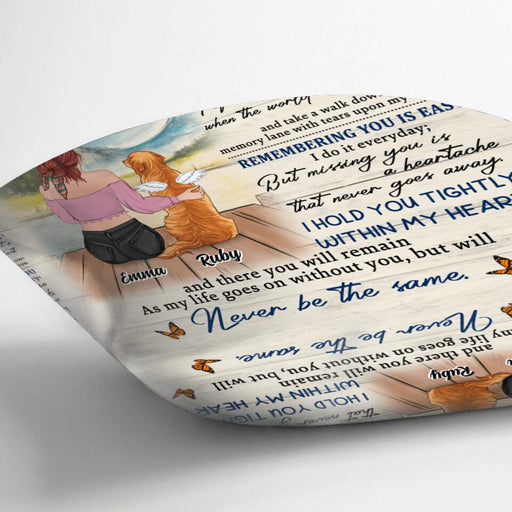 when the world
and take a walk down
memory lane with tears upon my
REMEMBERING YOU IS
I do it everyday;
But missing you is
a heartache
that never goes away.
I HOLD YOU TIGHTLY
WITHIN MY
and there you will remain
As my life goes on without you, but will
Never be the same.
Emma
Ruby
Never be the same.
my life goes on without you, but will
and there you will remain
WITHIN MY
I HOLD YOU
that never
Ruby